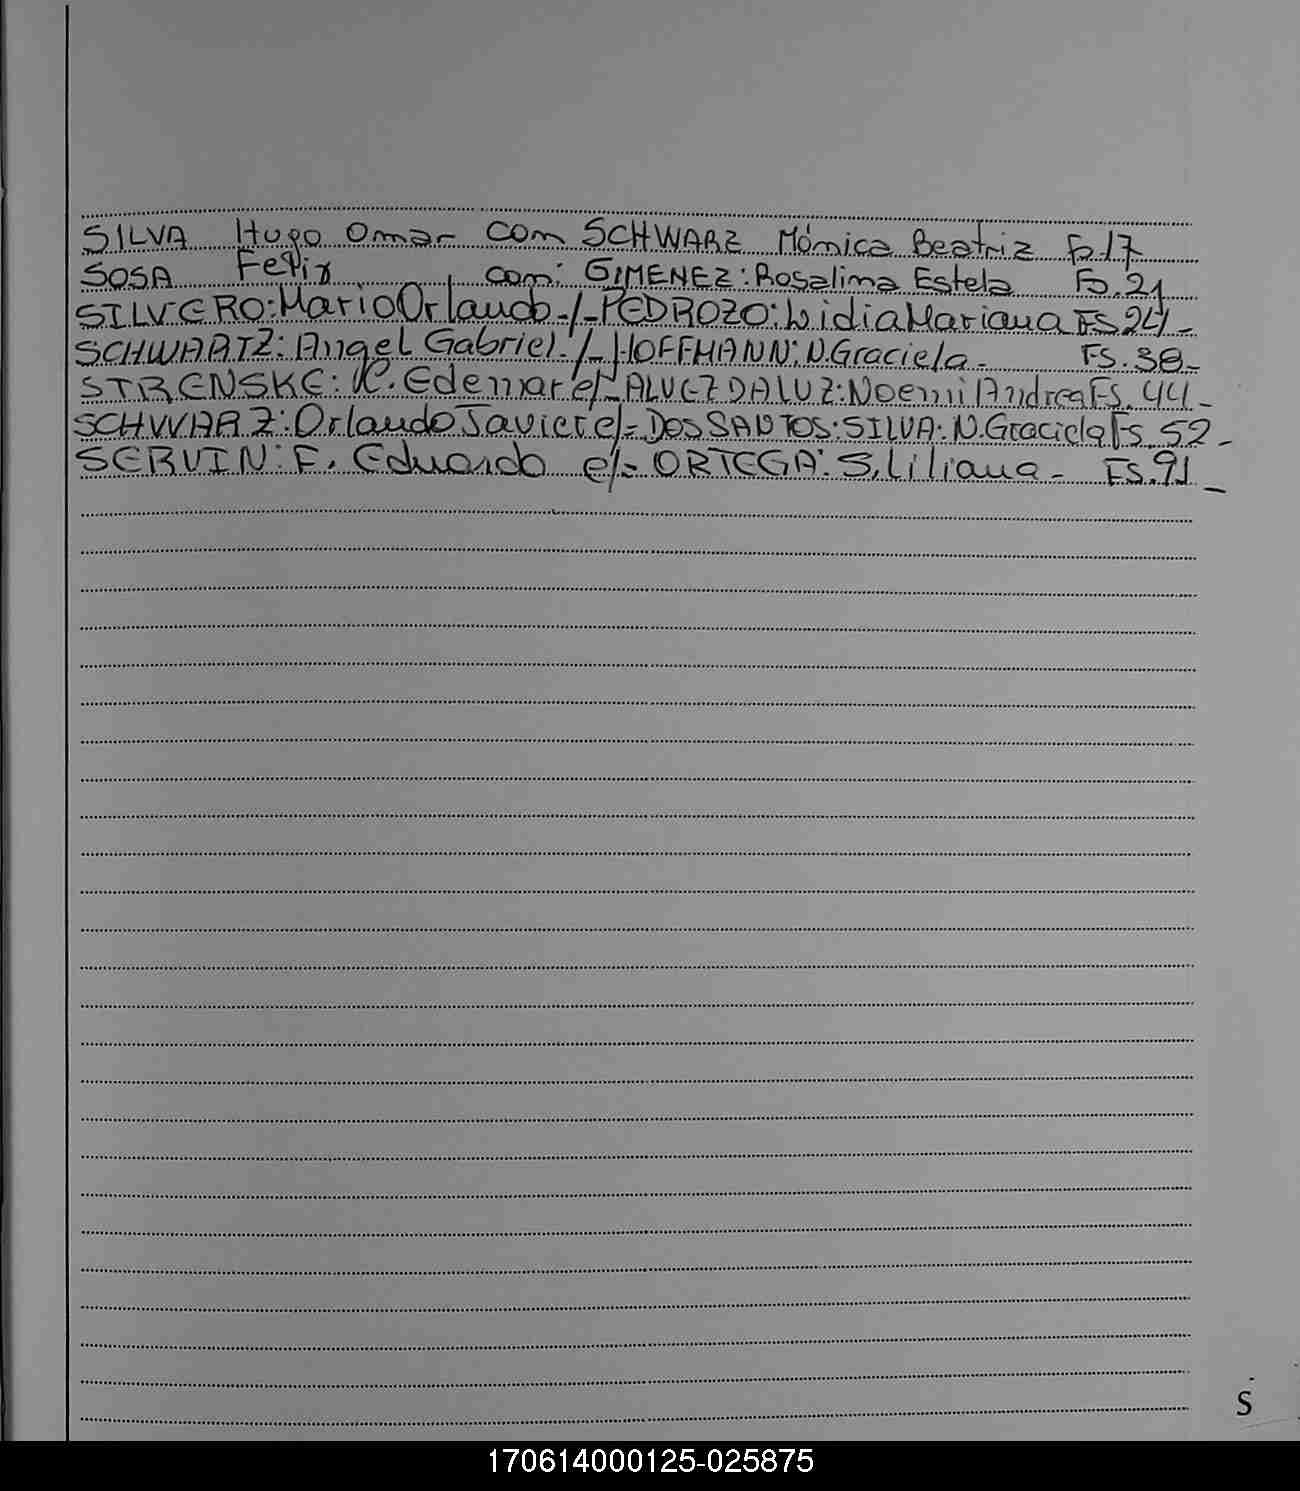 SILVA Hugo Omar con SCHWARZ Mónica Beatriz Fo.17
SOSA Felix con: GIMENEZ: Rosalina Estela Fo.21
SILVERO: Mario Orlando-/-PEDROZO: Lidia Mariana FS 24-
SCHWARTZ: Angel Gabriel./-HOFFMANN: N. Graciela- FS.38-
STRENSKE: K. Edemar c/- ALVEZ DA LUZ: Noemi Andrea FS. 44-
SCHWARZ: Orlando Javier c/= DOS SANTOS: SILVA: N. Graciela FS 52-
SERVIN: F. Eduardo c/= ORTEGA: S. Liliana- FS.91-
S
170614000125-025875